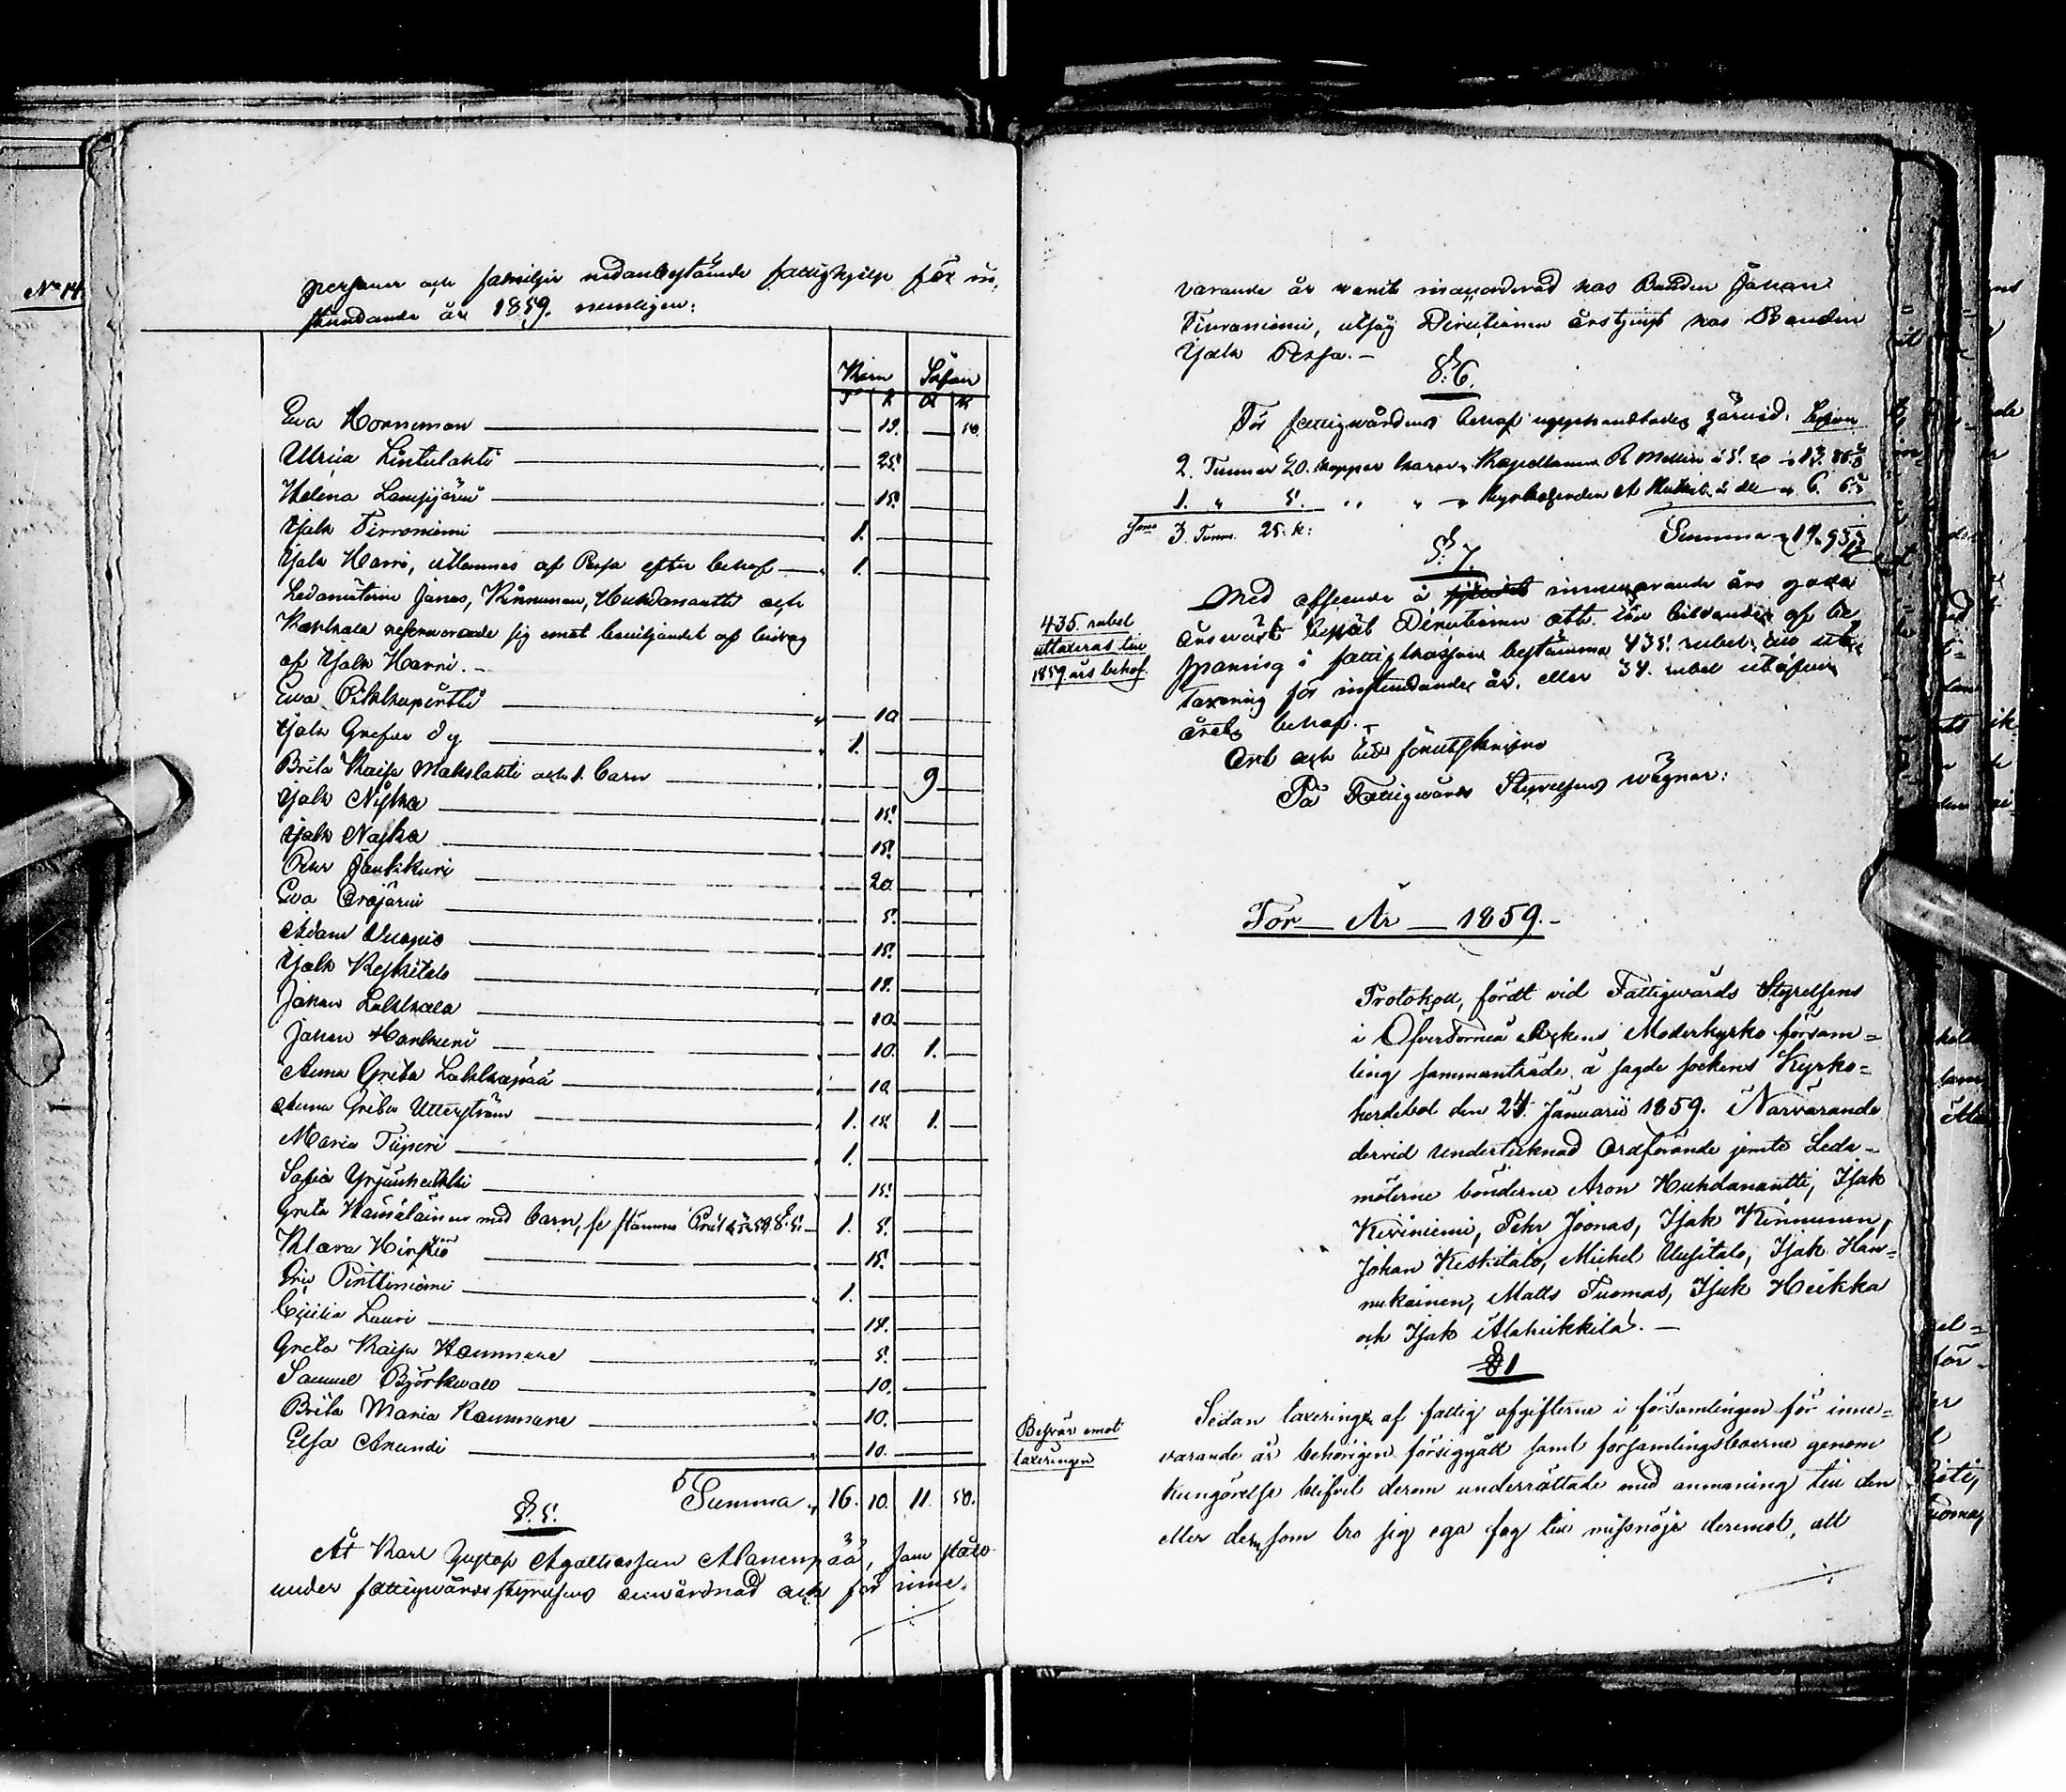 No 14.
personer och familjer nedanstående fattighjelp för in-
stundande år 1859. nemligen:
Korn Silfver
T K R K
Ewa Hornuman — 19. — 50.
Ulrica Lintulahti — 25. —
Helena Lampijärvi — 15. —
Isak Tirroniemi 1. —
Isak Harri, utlemnas af Persa efter behof 1. —
Ledamöterne Jonas, Kinnunen, Huhdanantti och
reserverade sig emot beviljandet af bidrag
af Isak Harri. —
Ewa Pikkupirtti — 10 —
Isak Grefve 1. —
Brita Kaisa Makslahti och 1. barn — 9 —
Isak Niska — 15. —
Isak Naska — 15. —
Junkkuri — 20. —
Ewa Orajärvi — 5. —
Adam Vuopio — 15. —
Isak Keskitalo — 14. —
Johan Lakkala — 10. —
Johan — 10. 1. —
Anna Greta Lakkapää — 10. —
Anna Greta Utterström 1. 14. 1. —
Maria Tiiperi 1. —
Sofia Yrjänheikki — 15. —
Greta Hämäläinen med barn, 1. 5. —
Klara — 15. —
Eric Pirttiniemi 1. —
Cecilia Lauri — 14. —
Greta Kaisa — 5. —
Samuel Björkwall — 10. —
Brita Maria — 10. —
Elsa Anundi — 10. —
Summa 16. 10. 11. 50.
§. 5.
Åt Karl Gustaf Agathasson Alanenpää, som stått
under fattigvårds styrelsens omvårdnad och för inne-
varande år varit inackorderad hos Bonden Johan
Turoniemi, utsåg Direktionen årstjenst hos Bonden
Isak Persa. —
§. 6.
För fattigvårdens behof upphandlades härvid.
2. Tunnor 20. kappar korn, Kapellanen
1. " 5. " "
3. Tunn. 25. k: Summa 19. 95
§. 7.
435. rubel
uttaxeras till
1859 års behof.
Med afseende å innevarande års goda
årsväxt beslöt Direktionen att till bildande af be-
sparing i fattigkassan bestämma 435. rubel till ut-
taxering för instundande år, eller 34. rubel utöfver
årets behof. —
Ort och tid förutskrifne
På Fattigvårds Styrelsens vägnar:
För — År — 1859. —
Protokoll, fördt vid Fattigvårds Styrelsens
i ÖfverTorneå Sockens Moderkyrko försam=
ling sammanträde å sagde sockens Kyrko=
herdebol den 24. Januarii 1859. Närvarande
dervid undertecknad Ordförande jemte Leda-
möterne bönderne Aron Huhdanantti, Isak
Kiviniemi, Pehr Joonas, Isak Kinnunen,
Johan Keskitalo, Michel Uusitalo, Isak Han=
nukainen, Matts Tuomas, Isak Heikka
och Isak Alaheikkilä. —
§ 1
Besvär emot
taxeringen
Sedan taxering af fattig afgifterne i församlingen för inne=
varande år behörigen försiggått samt församlingsboerne genom
kungörelse blifvit derom underrättade med anmaning till den
eller dem, som tro sig ega fog till missnöje deremot, att